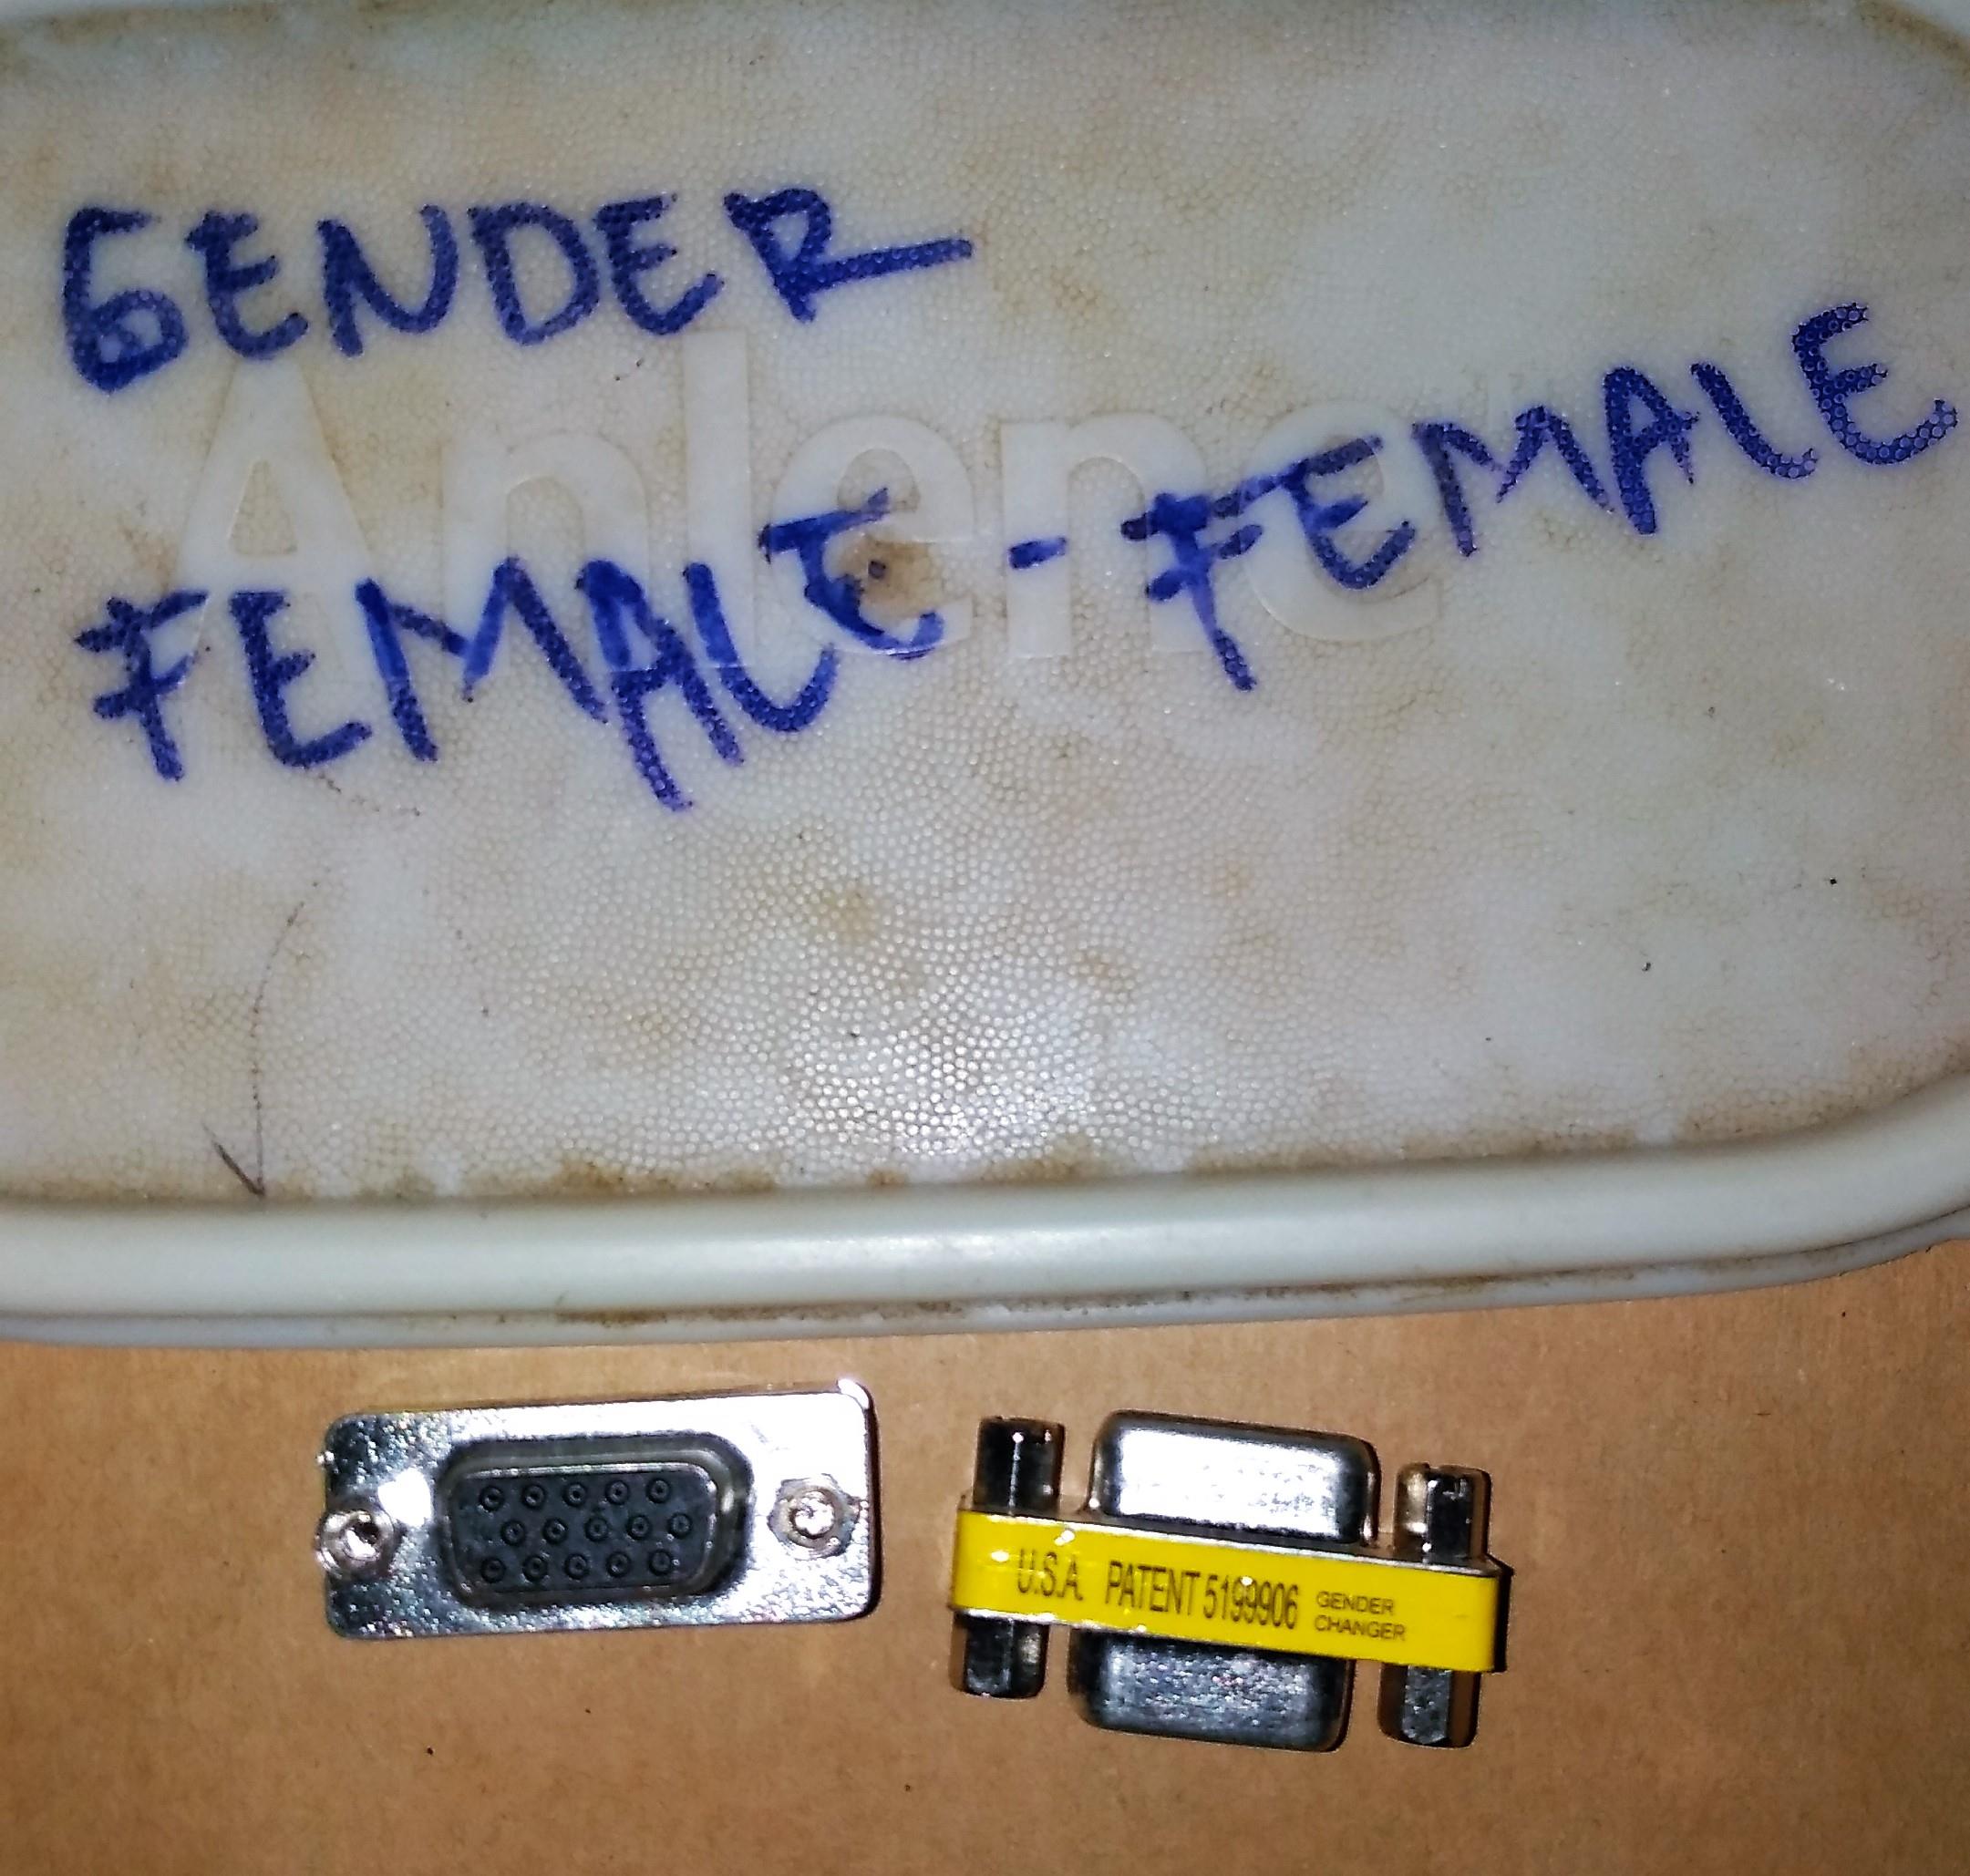 GENDER
Anlene
FEMALE - FEMALE
U.S.A. PATENT 5199906 GENDER
CHANGER